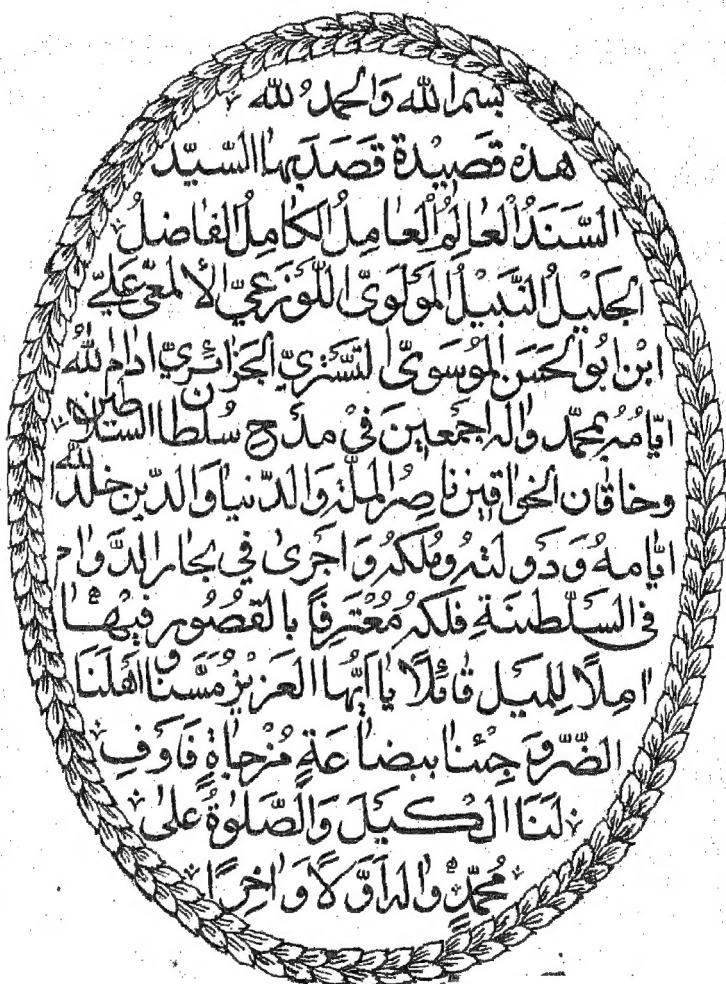 بسم الله والحمد لله
هذه قصيدة قصد بها السيّد
السَّنَدُ الْعَالِمُ الْعَامِلُ الْكَامِلُ الْفَاضِلُ
الجَلِيلُ النَّبِيلُ المَوْلَوِيّ اللَّوْذَعِيّ الألمعيّ عَلِيّ
ابن ابو الحَسَن المُوسَوِيّ التُّسْتَرِيّ الجَزَائِرِيّ ادام الله
ايّامهُ بمحمّد واله اجمعين في مدح سُلطان السّلاطين
وخاقان الخواقين ناصر الملّة والدّنيا والدّين خلد الله
ايّامهُ ودولتهُ وملكهُ واجرى في بحار الدّوام
في السّلطنة فلكهُ مُعْتَرِفًا بالقُصُور فيها
امِلًا لِلميل قائلًا يا ايّها العزيز مَسَّنا و اهلنا
الضّرّ و جئنا ببضاعةٍ مُزجاةٍ فَاَوْفِ
لَنَا الكَيْلَ وَالصَّلٰوةُ عَلٰى
مُحَمَّدٍ وَالهِ اَوَّلًا وَاخِرًا